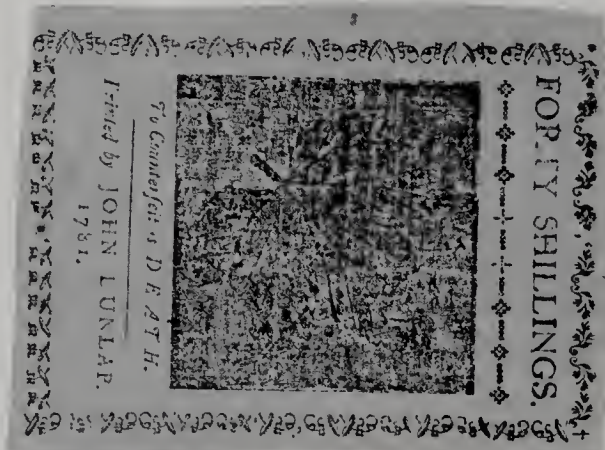 FORTY SHILLINGS.
To Counterfeit is DEATH.
Printed by JOHN DUNLAP.
1781.